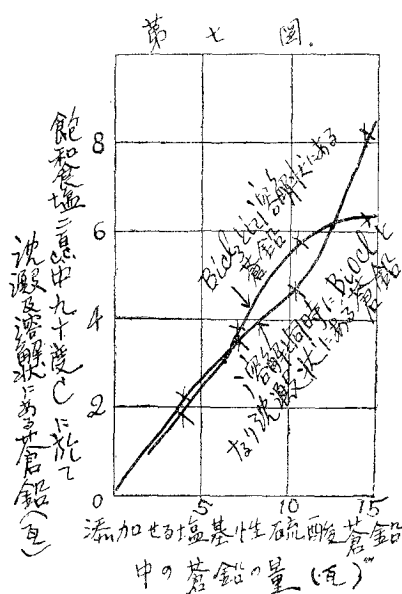 第七図.
飽和食塩二瓦中九十度Cに於て
沈澱及溶解状にある蒼鉛(瓦)
8
6
4
2
0
5
10
15
BiCl₃として溶解状にある
蒼鉛
溶解と同時にBiOClと
なり沈澱状にある蒼鉛
添加せる塩基性硫酸蒼鉛
中の蒼鉛の量(瓦)